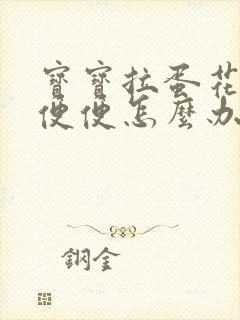 寶寶拉蛋花
便便怎麼办
鋼金